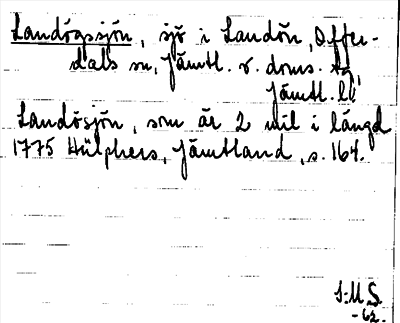 Landögssjön, sjö i Landön, Offer-
dals sn, Jämtl. v. doms. tg,
Jämtl. ll.
Landösjön, som är 2 mil i längd
1775 Hülphers, Jämtland, s. 164.
S:M S
-62-